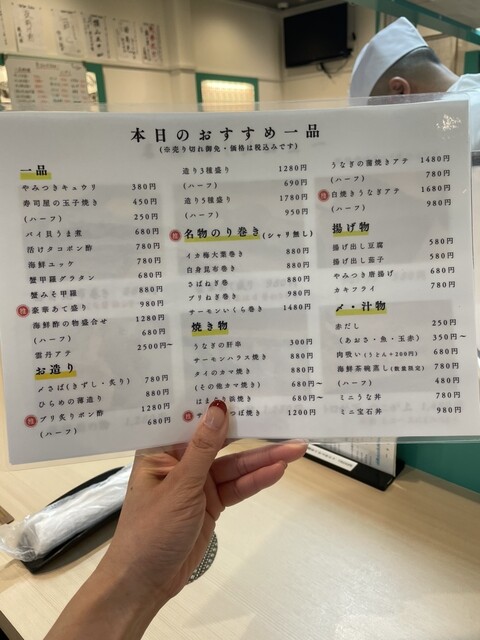 本日のおすすめ一品
(※売り切れ御免・価格は税込みです)
一品
やみつきキュウリ 380円
寿司屋の玉子焼き 450円
(ハーフ) 250円
バイ貝うま煮 680円
活けタコポン酢 780円
海鮮ユッケ 780円
蟹甲羅グラタン 680円
蟹みそ甲羅 880円
豪華あて盛り 980円
海鮮酢の物盛合せ 1280円
(ハーフ) 680円
雲丹アテ 2500円~
お造り
〆さば(きずし・炙り) 780円
ひらめの薄造り 880円
ブリ炙りポン酢 1280円
(ハーフ) 680円
造り3種盛り 1280円
(ハーフ) 690円
造り5種盛り 1780円
(ハーフ) 950円
名物のり巻き(シャリ無し)
イカ梅大葉巻き 880円
白身昆布巻き 880円
さばねぎ巻 880円
ブリねぎ巻き 980円
サーモンいくら巻き 1480円
焼き物
うなぎの肝串 300円
サーモンハラス焼き 880円
タイのカマ焼き 680円
(その他カマ焼き) 680円~
はま 浜焼き 680円~
つぼ焼き 1200円
うなぎの蒲焼きアテ 1480円
(ハーフ) 780円
白焼きうなぎアテ 1680円
(ハーフ) 980円
揚げ物
揚げ出し豆腐 580円
揚げ出し茄子 580円
やみつき唐揚げ 680円
カキフライ 780円
〆・汁物
赤だし 250円
(あおさ・魚・玉赤) 350円~
肉吸い(うどん+200円) 680円
海鮮茶碗蒸し(数量限定) 780円
(ハーフ) 480円
ミニうな丼 780円
ミニ宝石丼 980円